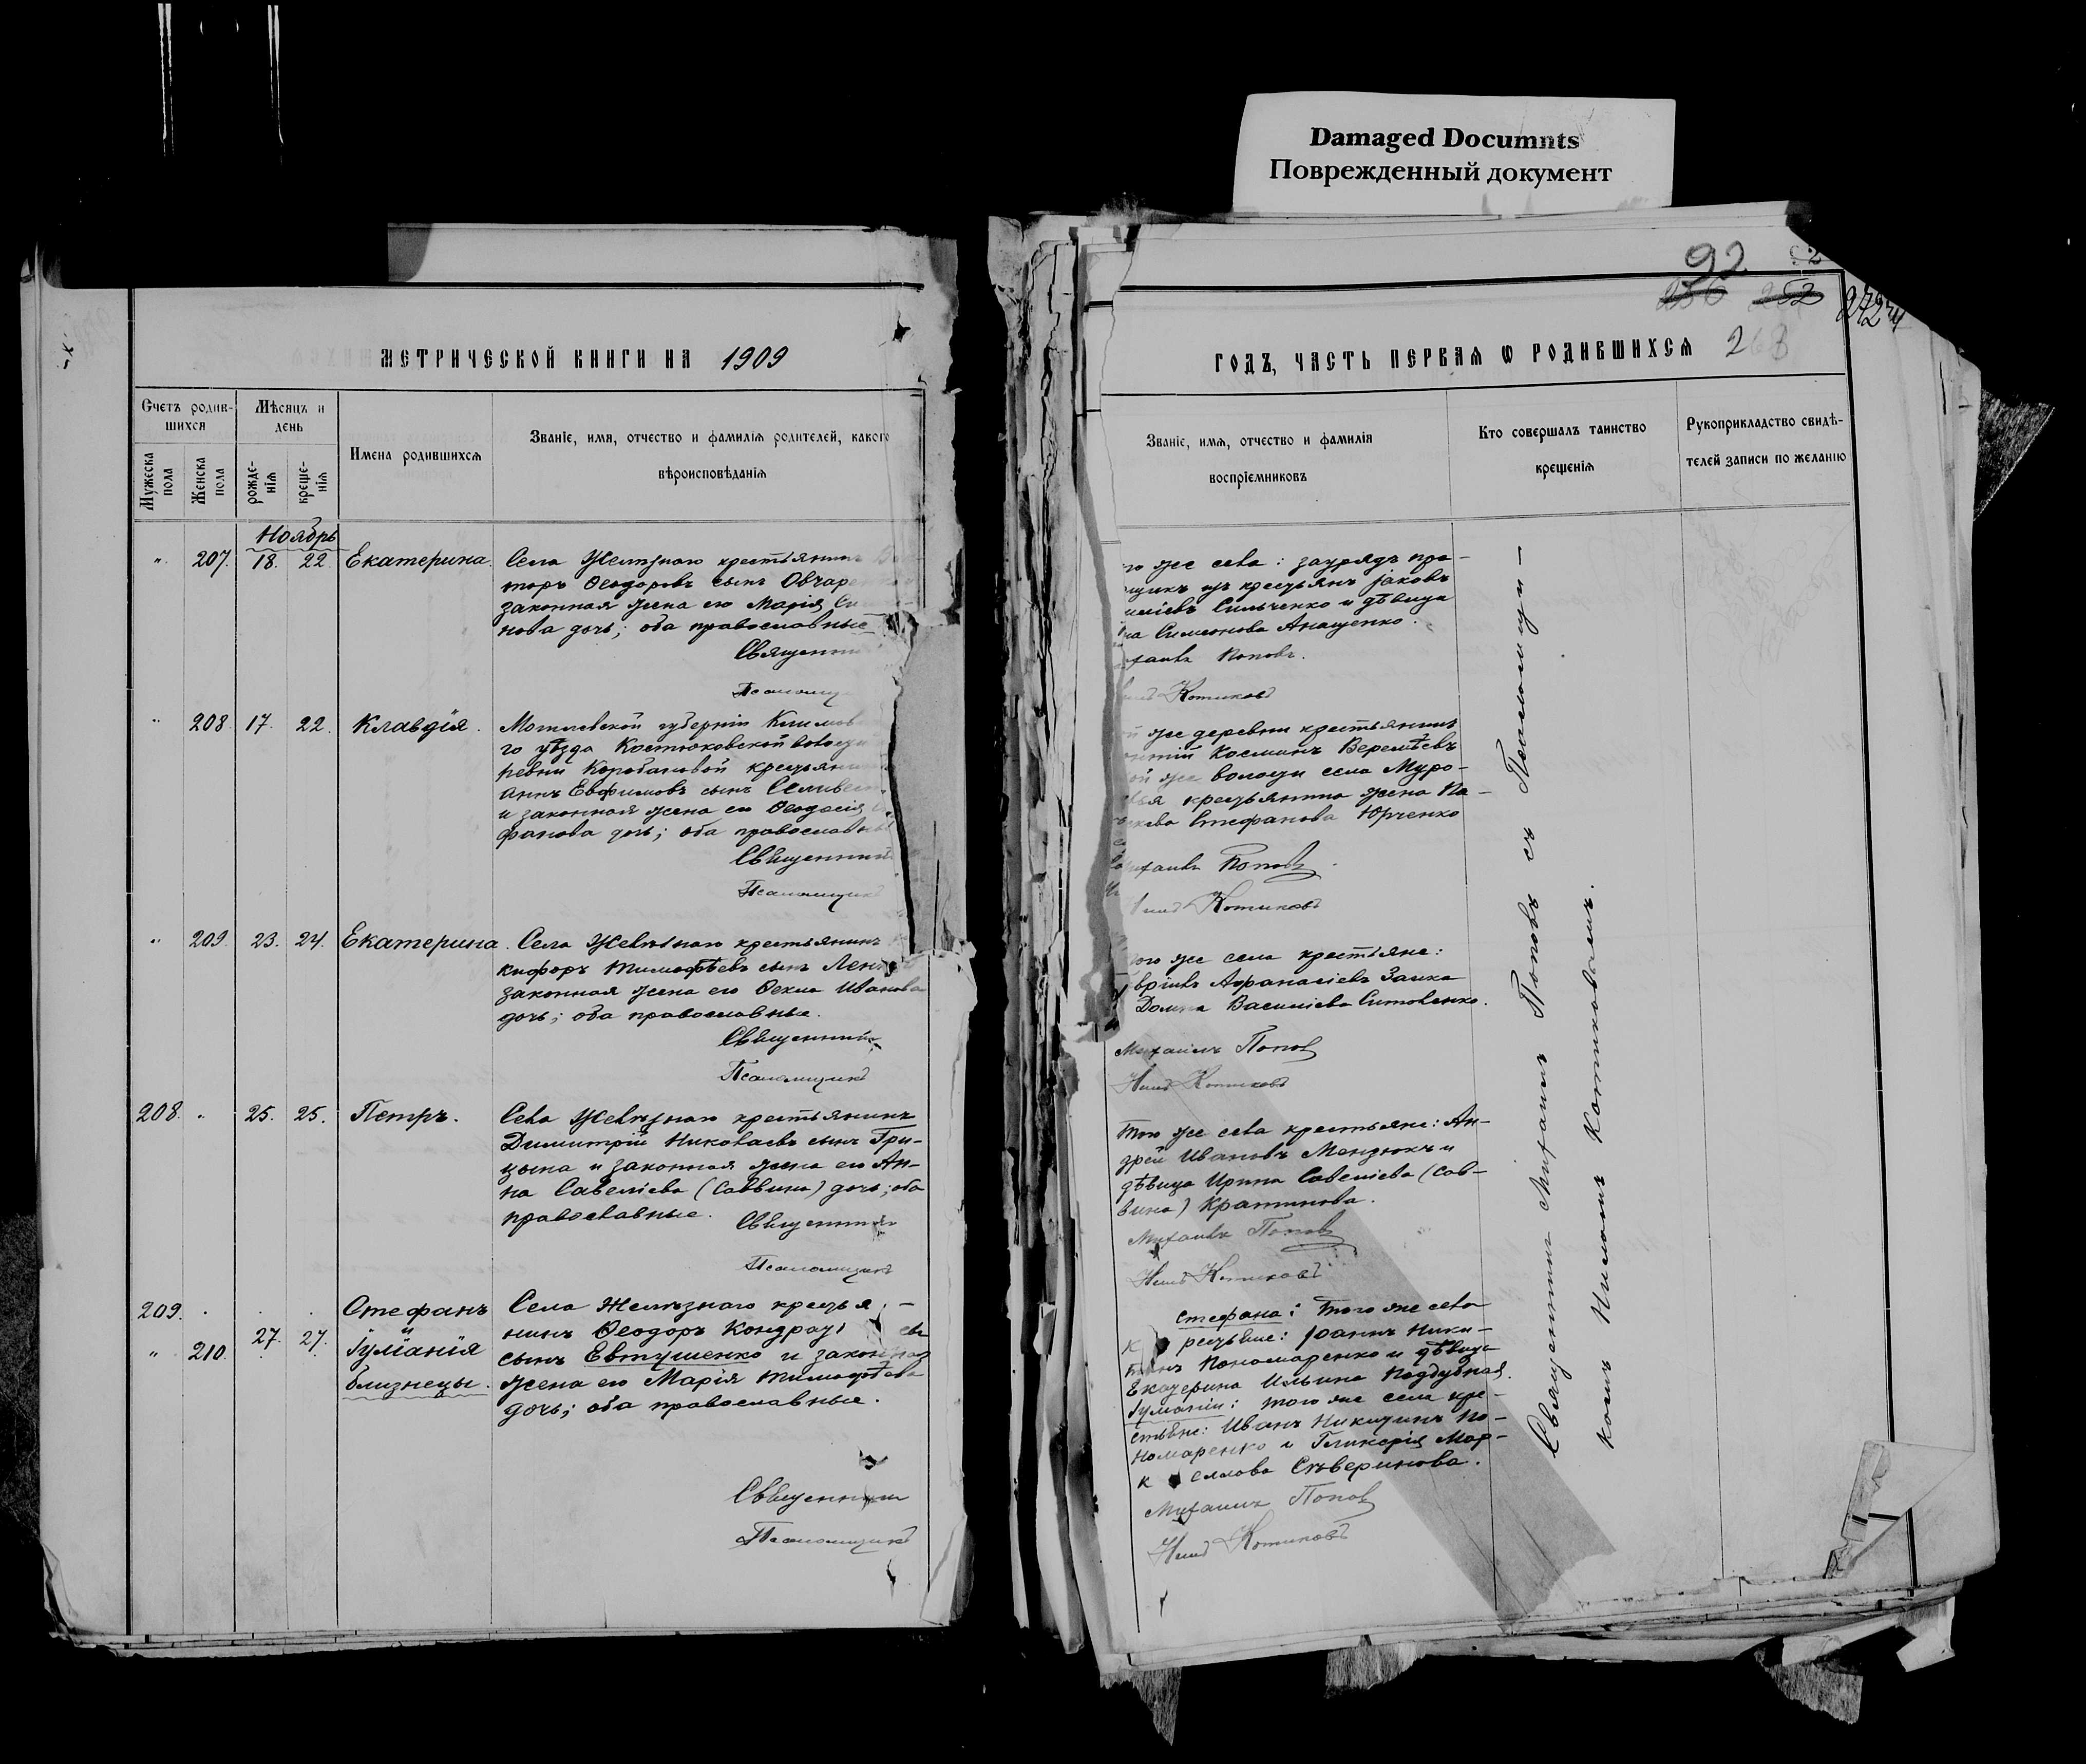 Damaged Documnts
Поврежденный документ
92
256 252 272
МЕТРИЧЕСКОЙ КНИГИ НА 1909
ГОДЪ, ЧАСТЬ ПЕРВАЯ Ѡ РОДИВШИХСЯ 268
Счетъ родив-
шихся
Мужеска пола
Женска пола
Мѣсяцъ и
день
рожде-
нія
креще-
нія
Имена родившихся
Званіе, имя, отчество и фамилія родителей, какого
вѣроисповѣданія
Званіе, имя, отчество и фамилія
воспріемниковъ
Кто совершалъ таинство
крещенія
Рукоприкладство свидѣ-
телей записи по желанію
Ноябрь
" 207. 18. 22. Екатерина.
Села Желѣзнаго крестьянинъ
торъ Ѳеодоровъ сынъ Овчаре
законная жена его Марія Си
нова дочь; оба православные
Священни
Псаломщ
го же села: заурядъ пра-
щикъ изъ крестьянъ Іаковъ
иліевъ Сильченко и дѣвица
на Симеонова Анащенко.
хаилъ Поповъ.
Котиковъ
" 208 17. 22. Клавдія.
Могилевской губерніи Климов
го уѣзда Костюковской волости
ревни Коробановой крестьянин
аннъ Евфимовъ сынъ Селивес
и законная жена его Ѳеодосія
фанова дочь; оба православны
Священник
Псаломщик
же деревни крестьянинъ
Косминъ Веремѣевъ
ой же волости села Муро-
крестьянина жена Па-
Стефанова Юрченко
Михаилъ Поповъ
Котиковъ
" 209. 23. 24. Екатерина.
Села Желѣзнаго крестьянинъ
кифоръ Тимоѳѣевъ сынъ Лен
законная жена его Ѳекла Иванова
дочь; оба православные.
Священник
Псаломщикъ
ого же села крестьяне:
вріилъ Аѳанасіевъ Заика
Домна Василіева Ситовенко.
Михаилъ Поповъ
Котиковъ
208. " 25. 25. Петръ.
Села Желѣзнаго крестьянинъ
Димитрій Николаевъ сынъ Гри-
цына и законная жена его Ан-
на Савеліева (Саввина) дочь; оба
православные.
Священник
Псаломщикъ
Того же села крестьяне: Ан-
дрей Ивановъ Мендюкъ и
дѣвица Ирина Савеліева (Сав-
вина) Кратинова.
Михаилъ Поповъ
Котиковъ
209. Стефанъ
и
" 210. 27. 27. Іуліанія
близнецы.
Села Желѣзнаго крестья-
нинъ Ѳеодоръ Кондрат евъ
сынъ Евтушенко и законная
жена его Марія Тимоѳѣева
дочь; оба православные.
Священник
Псаломщикъ
Стефана: того же села
крестьяне: Іоаннъ Ники-
тинъ Пономаренко и дѣвица
Екатерина Ильина Поддубная.
Іуліаніи: того же села кре-
стьяне: Иванъ Никитинъ По-
номаренко и Гликерія Мар-
к еллова Сѣверинова.
Михаилъ Поповъ
Котиковъ
Священникъ Михаилъ Поповъ съ Псаломщи-
комъ Котиковымъ.